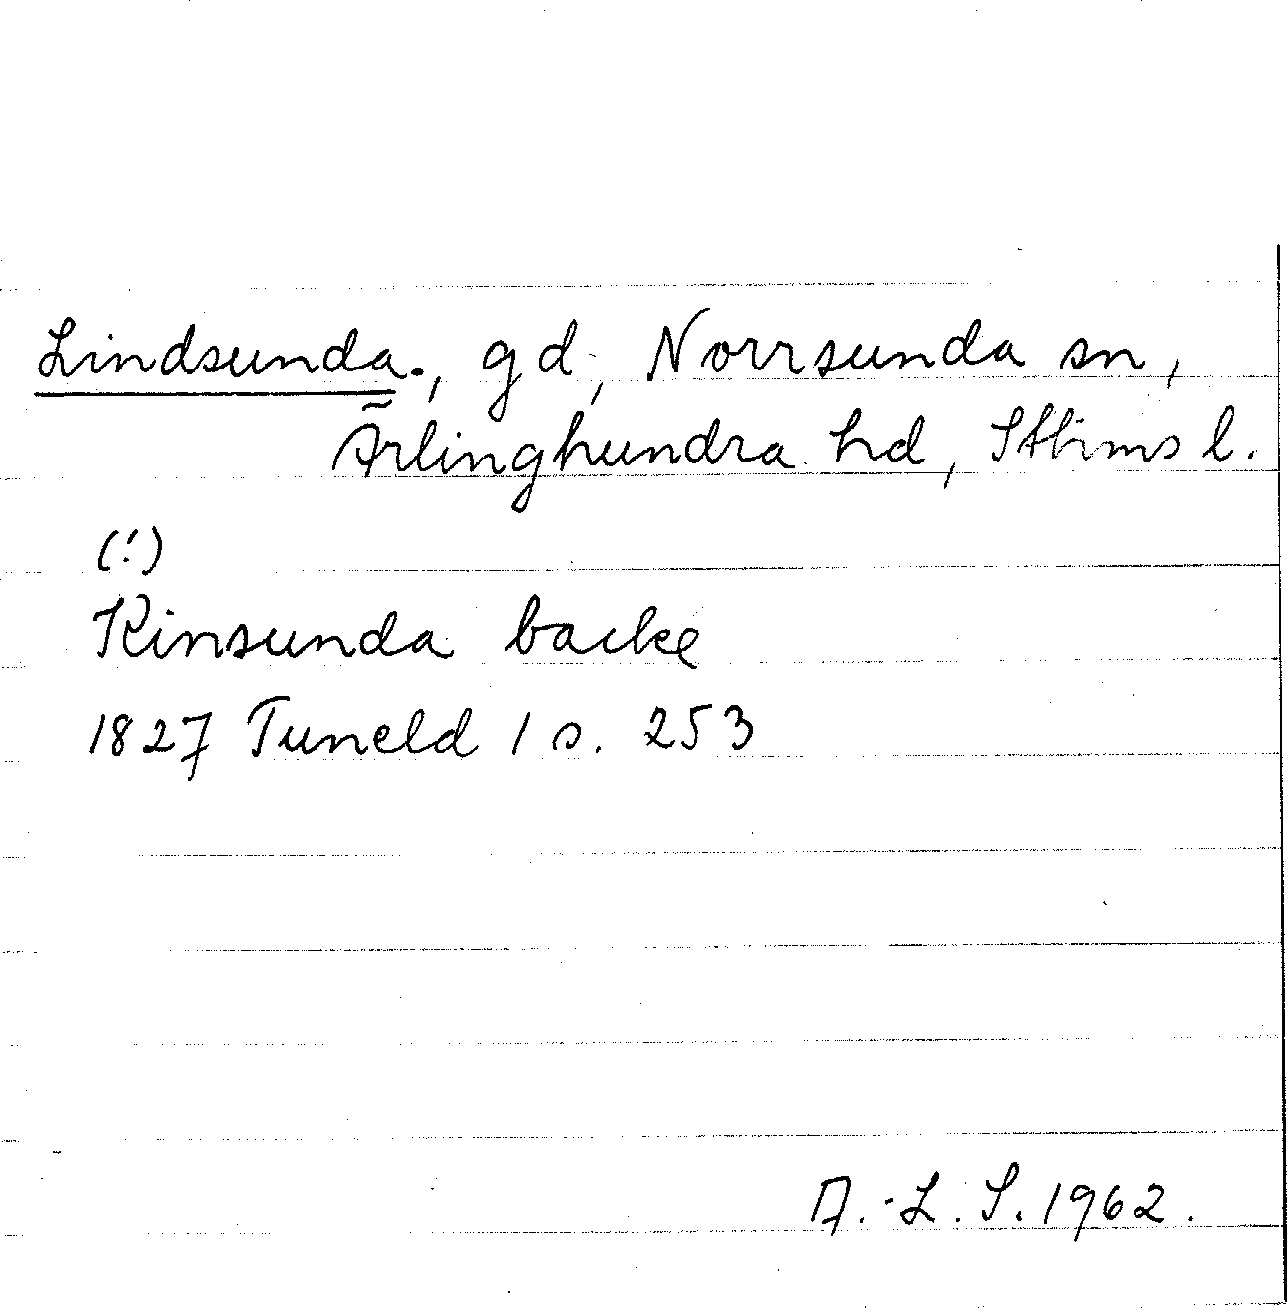 Lindsunda., gd, Norrsunda sn,
Ärlinghundra hd, Sthms l.
(!)
Kinsunda backe
1827 Tuneld 1 s. 253
A.-L. S. 1962.